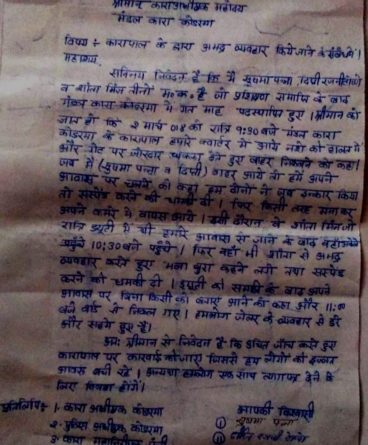 श्रीमान काराअधीक्षक महोदय
मंडल कारा कोडरमा
विषय :- कारापाल के द्वारा अभद्र व्यवहार किये जाने के संबंध में।
महाशय,
सविनय निवेदन है कि मैं सुषमा पन्ना दिप्ती
व शीला मिंज तीनों म०क० है जो प्रशिक्षण समाप्ति के बाद
मंडल कारा कोडरमा में गत माह पदस्थापित हुए। श्रीमान को
ज्ञात हो कि 2 मार्च की रात्रि 9:30 बजे मंडल कारा
कोडरमा के कारापाल हमारे क्वार्टर में आये नशे की हालत में
और गेट पर जोरदार धक्का देते हुए बाहर निकलने को कहा।
जब मैं (सुषमा पन्ना व दिप्ती) बाहर आये तो हमें अपने
आवास पर चलने को कहा हम दोनों ने जब इन्कार किया
तो सस्पेंड करने की धमकी दी। फिर किसी तरह
अपने कमरे में वापस आये। इसी दौरान शीला मिंज जो
रात्रि ड्यूटी में थी हमारे आवास से जाने के बाद
पहुँचे 10:30 बजे पहुँचे। फिर वहाँ भी शीला से अभद्र
व्यवहार करते हुए भला बुरा कहने लगे तथा सस्पेंड
करने की धमकी दी। ड्यूटी की समाप्ति के बाद अपने
आवास पर बिना किसी को बताए आने को कहा और 11:00
बजे वार्ड से निकल गए। हमलोग जेलर के व्यवहार से डरे
और सहमे हुए हैं।
अतः श्रीमान से निवेदन है कि उचित जाँच करते हुए
कारापाल पर कारवाई की जाए जिससे हम लोगों की इज्जत
आबरू बची रहे। अन्यथा हमलोग एक साथ त्यागपत्र देने के
लिए विवश होंगे।
प्रतिलिपि :- 1. कारा अधीक्षक कोडरमा
आपकी विश्वासी
2. पुलिस अधीक्षक कोडरमा
① सुषमा पन्ना
3. कारा
②